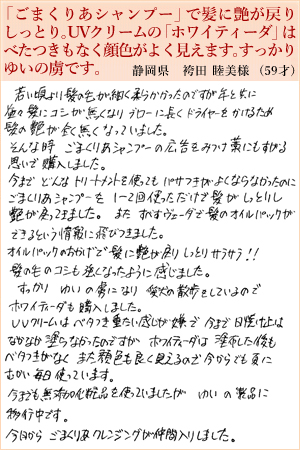 「ごまくりあシャンプー」で髪に艶が戻り
しっとり。UVクリームの「ホワイティーダ」は
べたつきもなく顔色がよく見えます。すっかり
ゆいの虜です。
静岡県　袴田 睦美様　（59才）
若い頃より髪の毛が細く柔らかかったのですが年と共に
益々髪にコシが無くなり ブローに長くドライヤーをかけるため
髪の艶が全く無くなっていました。
そんな時 ごまくりあシャンプーの広告をみつけ藁にもすがる
思いで購入しました。
今まで どんなトリートメントを使っても パサつきがよくならなかったのに
ごまくりあシャンプーを 1〜2回使っただけで髪が しっとりし
艶が戻ってきました。 また おすヴェーダで髪のオイルパックが
できるという情報に飛びつきました。
オイルパックのおかげで髪に艶が戻り しっとり サラサラ！！
髪の毛のコシも強くなったように感じました。
すっかり ゆい の虜になり 愛犬の散歩をしているので
ホワイティーダも購入しました。
UVクリームは ベタつき重たい感じが嫌で 今まで日焼け止は
なかなか塗らなかったのですが ホワイティーダは 塗布した後も
ベタつきがなく また 顔色も良く見えるので今からでも夏に
むかい毎日使っています。
今までも無添加化粧品を使っていましたが ゆい の製品に
移行中です。
今日から ごまくりあクレンジングが仲間入りしました。